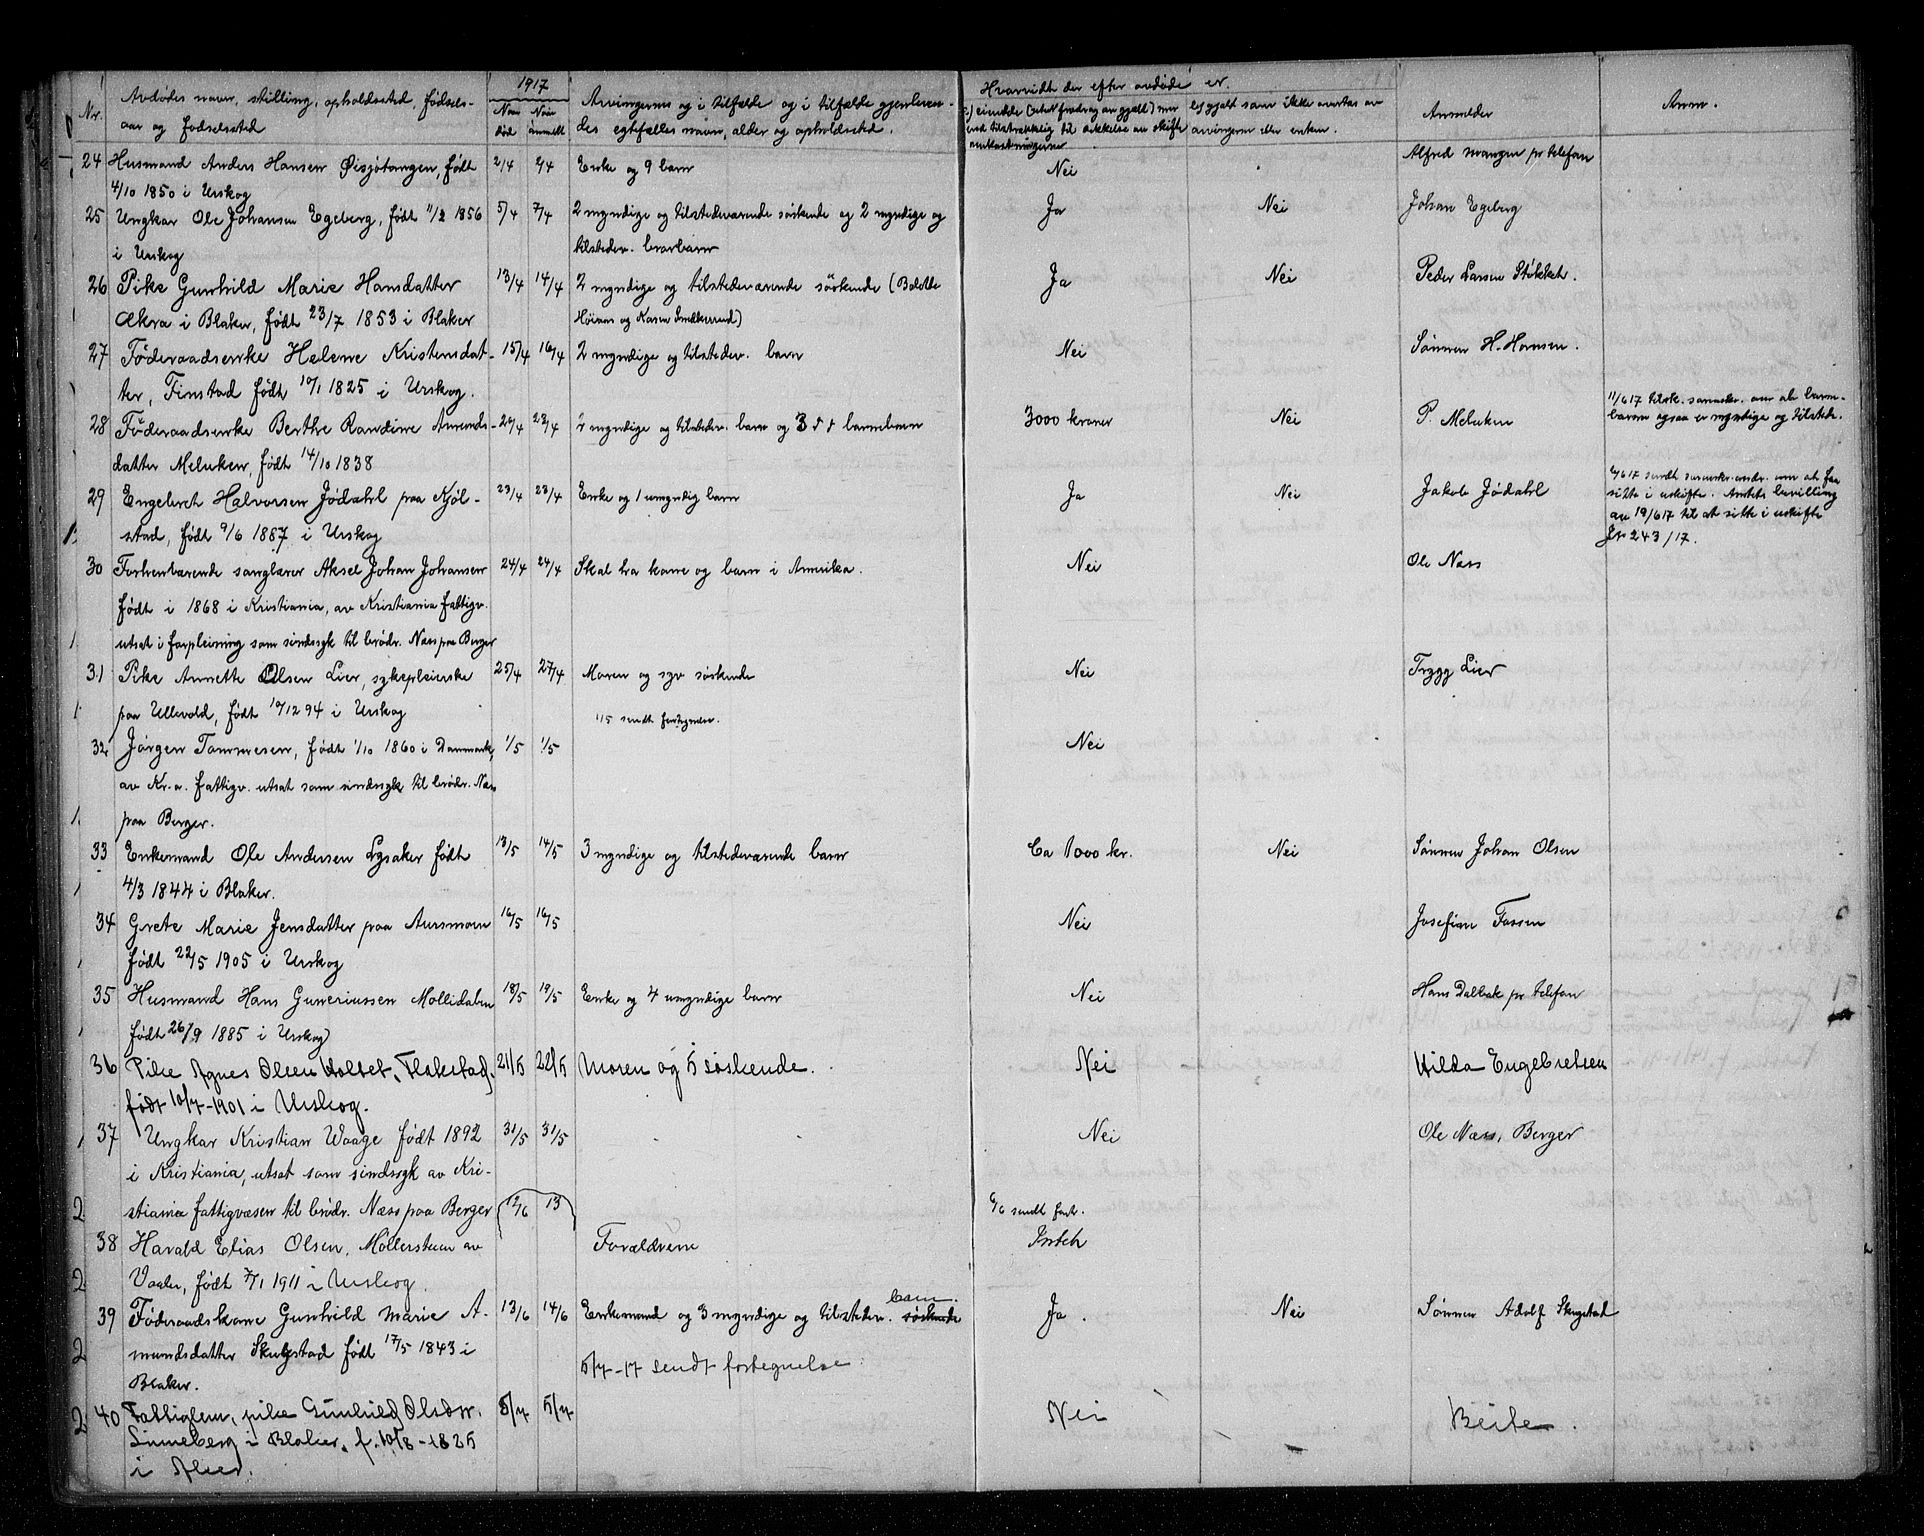 Nr. Avdødes navn, stilling, opholdssted, fødsels-
aar og fødselssted
1917
Naar død Naar anmeldt
Arvingernes og i tilfælde og i tilfælde gjenleven-
des egtefælles navn, alder og opholdssted.
Hvorvidt der efter avdøde er
Anmelder
Anm.
24 Husmand Anders Hansen Øisjøtangen, født 2/4 2/4 Enke og 9 barn Nei Alfred Mangen pr telefon
4/10 1850 i Urskog
25 Ungkar Ole Johansen Egeberg, født 11/2 1856 5/4 7/4 2 myndige og tilstedeværende søskende og 2 myndige og Ja Nei Johan Egeberg
i Urskog tilstedev. brorbarn
26 Pike Gunhild Marie Hansdatter 13/4 14/4 2 myndige og tilstedeværende søskende (Bolette Ja Nei Peder Larsen Støkket.
Økra i Blaker, født 23/7 1853 i Blaker og Karen
27 Føderaadsenke Helene Kristensdat- 15/4 16/4 2 myndige og tilstedev. barn Nei Sønnen H. Hansen.
ter, Finstad født 10/1 1825 i Urskog.
28 Føderaadsenke Berthe Randine Amunds- 20/4 23/4 2 myndige og tilstedev. barn og 3 barnebarn 3000 kroner Nei P. Melnken
11/6 17 om at barne-
barna ogsaa er myndige og tilstede.
datter Melnken, født 14/10 1838
29 Engebret Halvorsen Jødahl paa Kjøl- 23/4 23/4 Enke og 1 umyndig barn Ja Nei Jakob Jødahl
stad, født 9/6 1887 i Urskog
6/6 17 sendt om at faa
sitte i uskifte. Amtets bevilling
av 19/6 17 til at sitte i uskifte
Jr 243/17.
30 Forhenværende sanglærer Aksel Johan Johansen 24/4 24/4 Skal ha kone og barn i Amerika. Nei Ole Næss
født i 1868 i Kristiania, av Kristiania fattigv.
utsat i forpleining som sindssyk til brødr. Næss paa Berger
31 Pike Annette Olsen Lier, sykepleierske 25/4 27/4 Moren og syv søskende Nei Trygg Lier
paa Ullevold, født 10/12 94 i Urskog 1/5 sendt fortegnelse.
32 Jørgen Tommesen, født 1/10 1860 i Danmark, 1/5 1/5 Nei
av Kr.a. fattigv. utsat som sindssyk til brødr. Næss
paa Berger.
33 Enkemand Ole Andersen Lysaker født 13/5 14/5 3 myndige og tilstedeværende barn Ca 1000 kr. Nei Sønnen Johan Olsen
4/3 1844 i Blaker.
34 Grete Marie Jensdatter paa Aursmoen 16/5 16/5 Nei Josefine Fossen
født 22/5 1905 i Urskog
35 Husmand Hans Guneriussen Mollidalen 18/5 19/5 Enke og 4 umyndige barn Nei Hans Dalbak pr telefon
født 26/9 1885 i Urskog
36 Pike Agnes Olsen Holtet, Flakstad, 21/5 22/5 Moren og 5 søskende. Nei Hilda Engebretsen
født 10/7-1901 i Urskog.
37 Ungkar Kristian Waage født 1892 31/5 31/5 Nei Ole Næss, Berger
i Kristiania, utsat som sindssyk av Kri-
stiania fattigvæsen til brødr. Næss paa Berger 12/6 13 6/6 sendt fort.
38 Harald Elias Olsen, Møllerstuen av Forældrene Intet
Vaaler, født 7/1 1911 i Urskog.
39 Føderaadskone Gunhild Marie A- 13/6 14/6 Enkemand og 3 myndige og tilstedev. søskende barn. Ja. Nei Sønnen Adolf Skugstad
mundsdatter Skugstad født 17/5 1843 i 5/7-17 sendt fortegnelse
Blaker.
40 Fattiglem, pike Gunhild Olsdtr. 5/7 5/7 Nei Beite.
Linneberg i Blaker, f. 10/8-1825
i